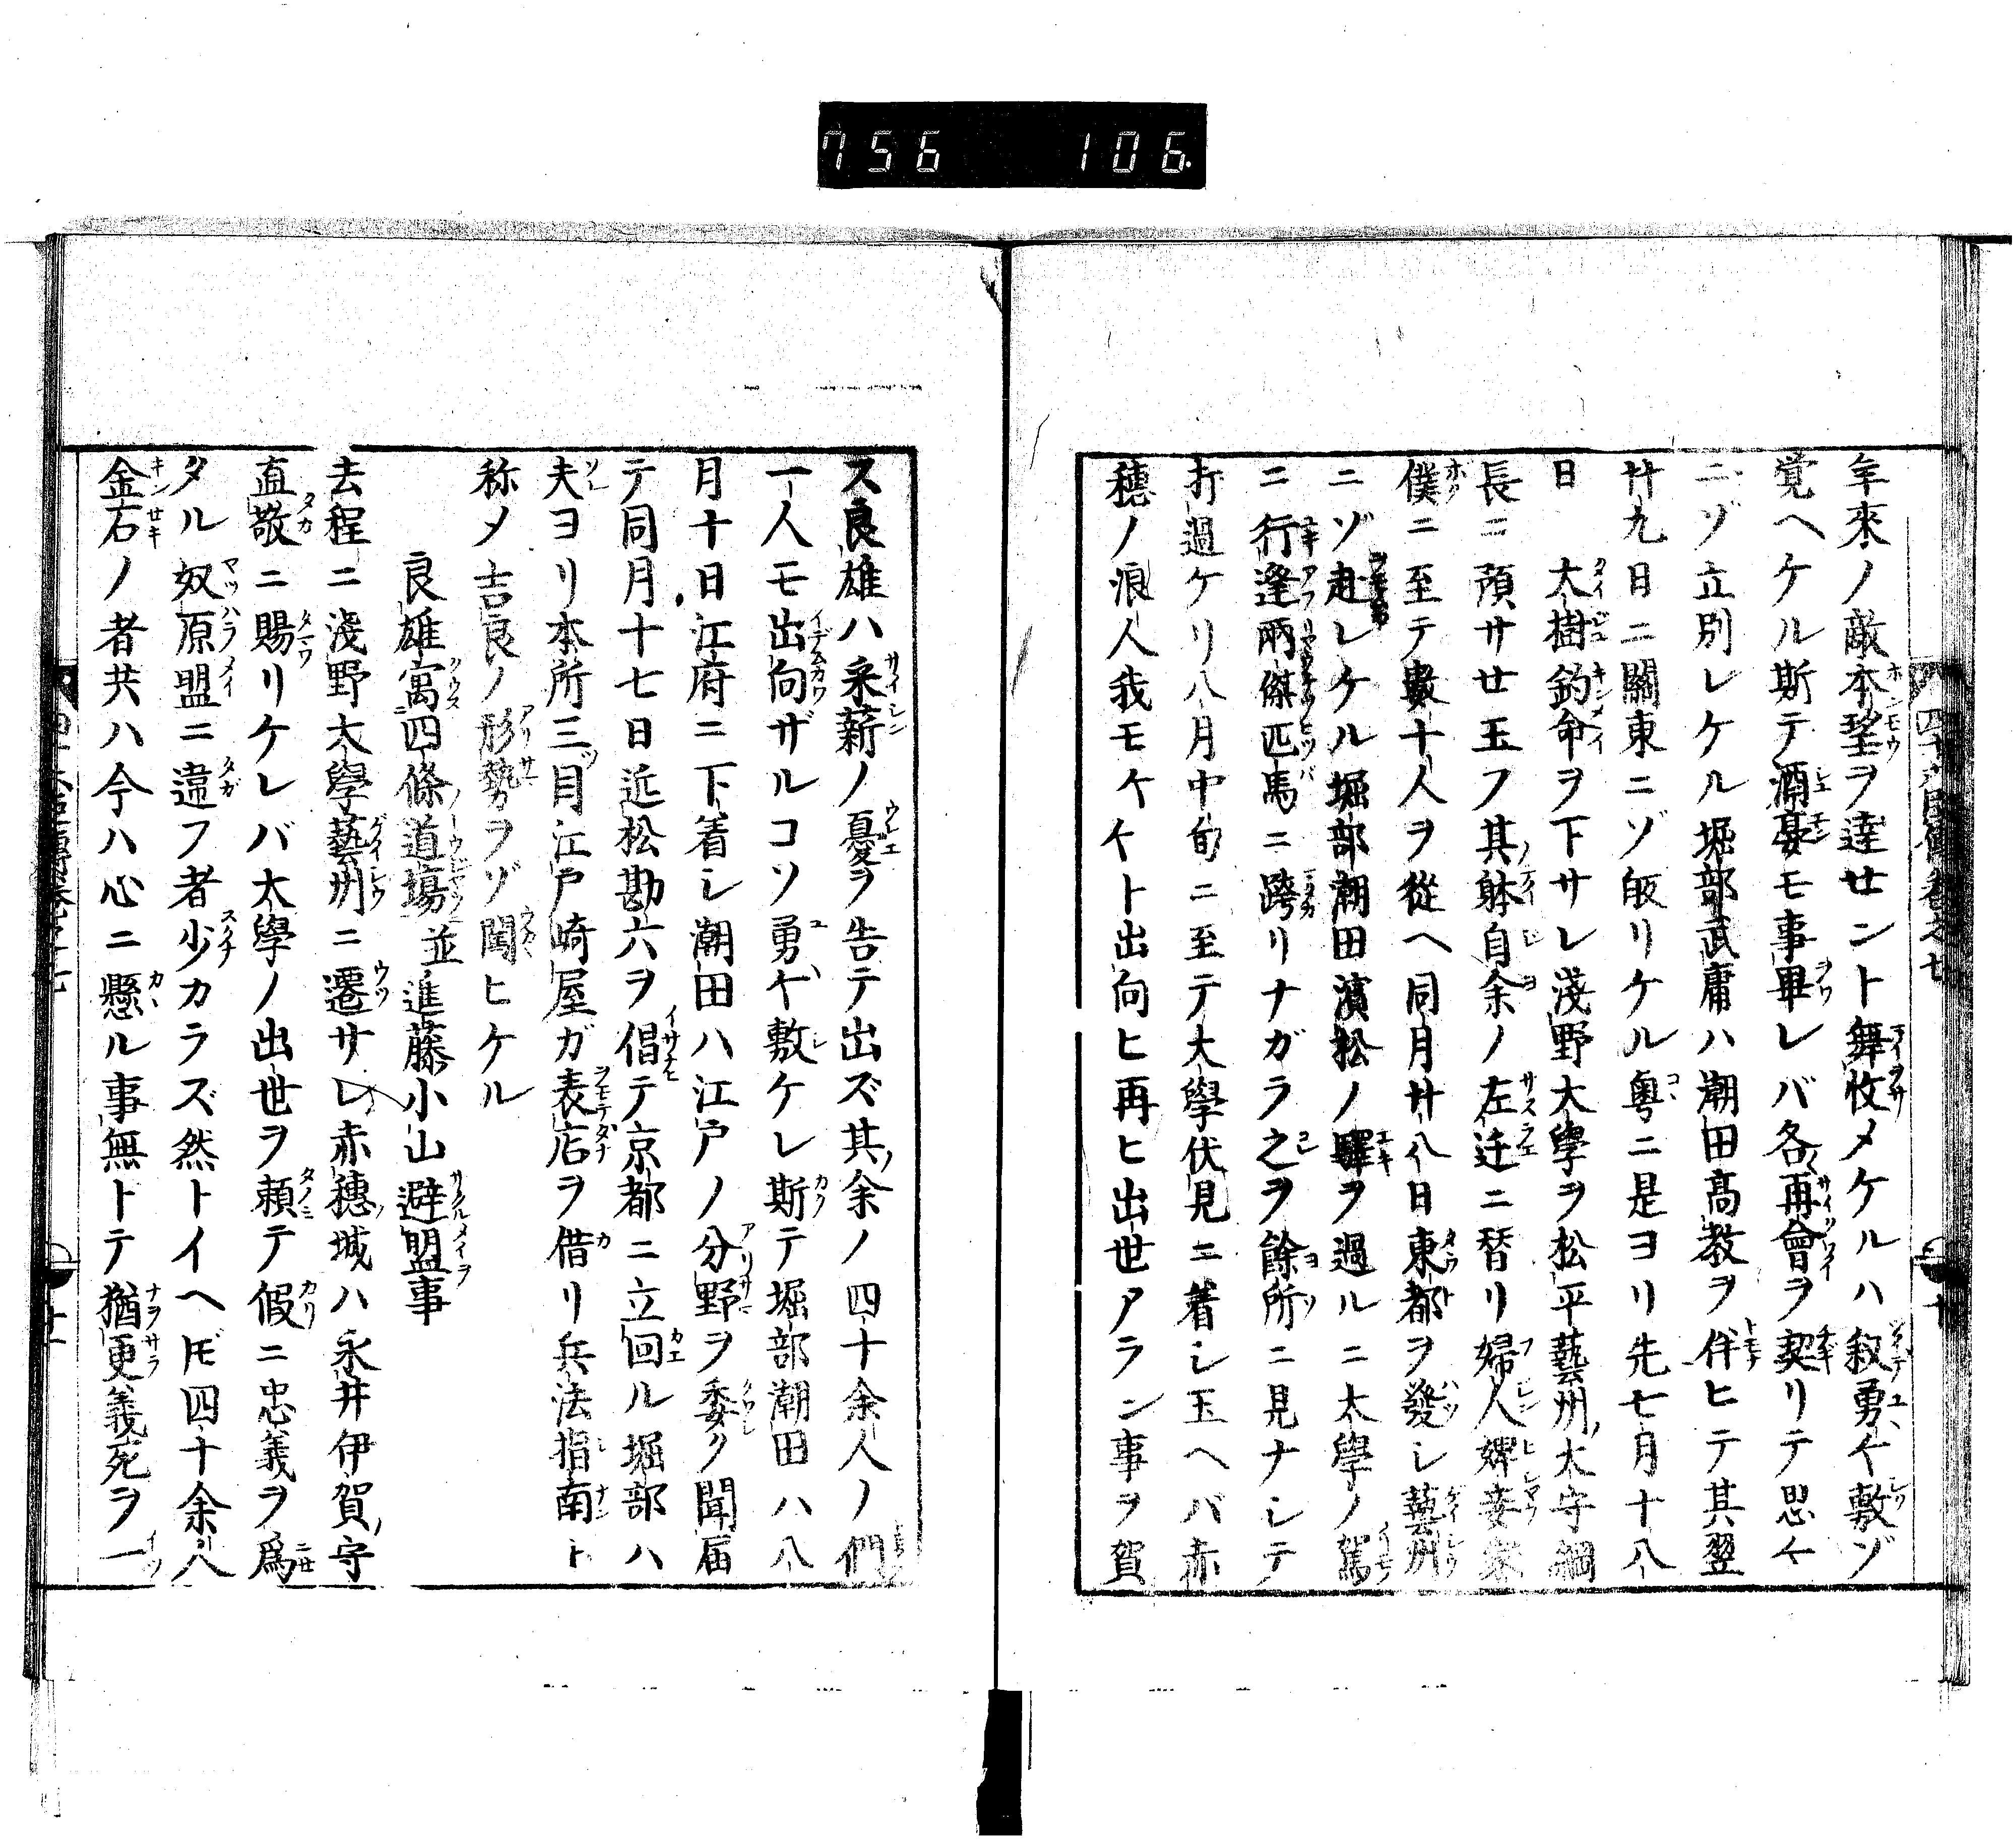 756 106
年來ノ敵本望ヲ達せント舞收メケルハ叙勇々敷ゾ
覚ヘケル斯テ酒宴モ事畢レバ各再會ヲ契リテ思々
ニゾ立別レケル堀部武庸ハ潮田髙教ヲ伴ヒテ其翌
廿九日ニ關東ニゾ皈リケル粤ニ是ヨリ先七月十八
日　大樹鈞命ヲ下サレ淺野大學ヲ松平藝州ノ太守綱
長ニ預サせ玉フ其躰自余ノ左迁ニ替リ婦人婢妾家
僕ニ至テ數十人ヲ從ヘ同月廿八日東都ヲ發シ藝州
ニゾ赴レケル堀部潮田濱松ノ驛ヲ過ルニ大學ノ駕
ニ行逢兩傑匹馬ニ跨リナガラ之ヲ餘所ニ見ナシテ
打過ケリ八月中旬ニ至テ大學伏見ニ着シ玉ヘバ赤
穗ノ浪人我モ〳〵ト出向ヒ再ヒ出世アラン事ヲ賀
ス良雄ハ采薪ノ憂ヲ告テ出ズ其余ノ四十余人ノ們
一人モ出向ザルコソ勇々敷ケレ斯テ堀部潮田ハ八
月十日江府ニ下着シ潮田ハ江戸ノ分野ヲ委ク聞届
テ同月十七日近松勘六ヲ倡テ京都ニ立回ル堀部ハ
夫ヨリ本所三ツ目江戸崎屋ガ表店ヲ借リ兵法指南ト
称メ吉良ノ形勢ヲゾ闚ヒケル
良雄寓四條道場並進藤小山避盟事
去程ニ淺野大學藝州ニ遷サレ赤穗ノ城ハ永井伊賀ノ守
直敬ニ賜リケレバ大學ノ出世ヲ頼テ假ニ忠義ヲ爲
タル奴原盟ニ違フ者少カラズ然トイヘ𪜈四十余人
金石ノ者共ハ今ハ心ニ懸ル事無トテ猶更義死ヲ一